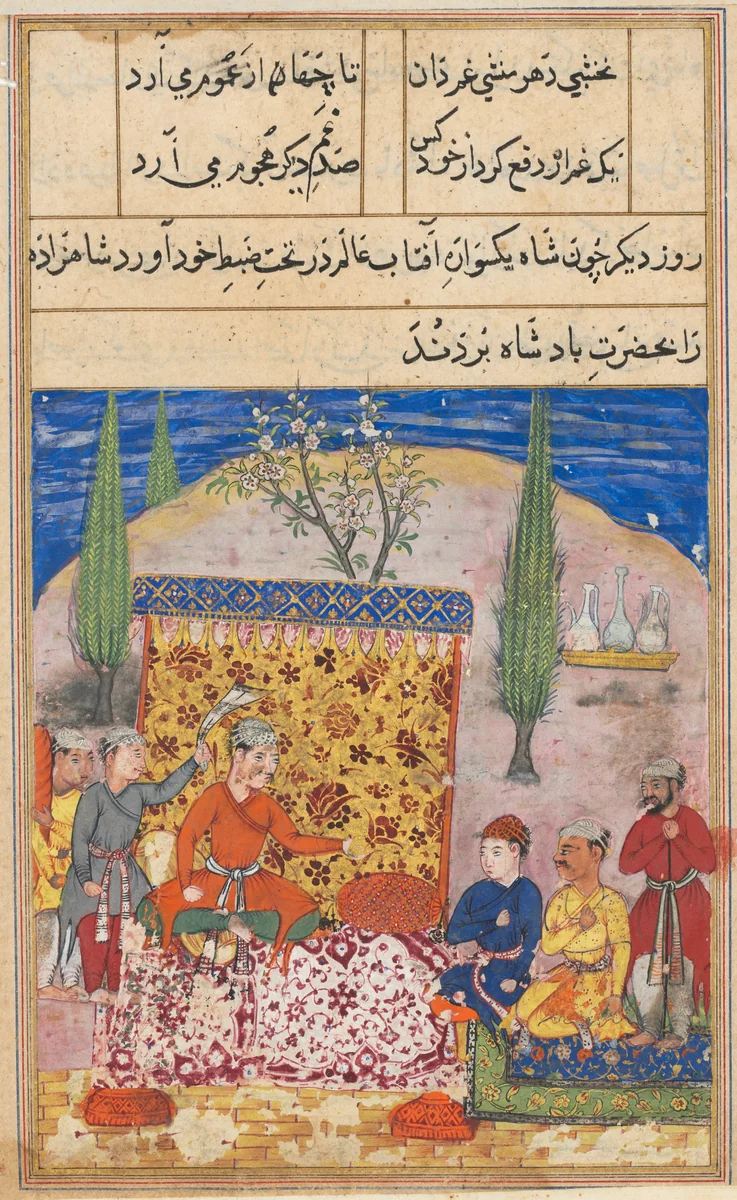 نخشبي دَهر منشي غم دَان تا جَهان از غمُوم مي آرد
يك غم ار دفع كرد از خود كس صَد غمِ ديكر هُجوم مي آرد
روز ديكر چُون شَاه يكسوَارهِ آفتاب عَالَم دَر تحتِ ضَبطِ خود آورد شاهزَاده
رَا بحضرَتِ بادشَاه بُردَندْ